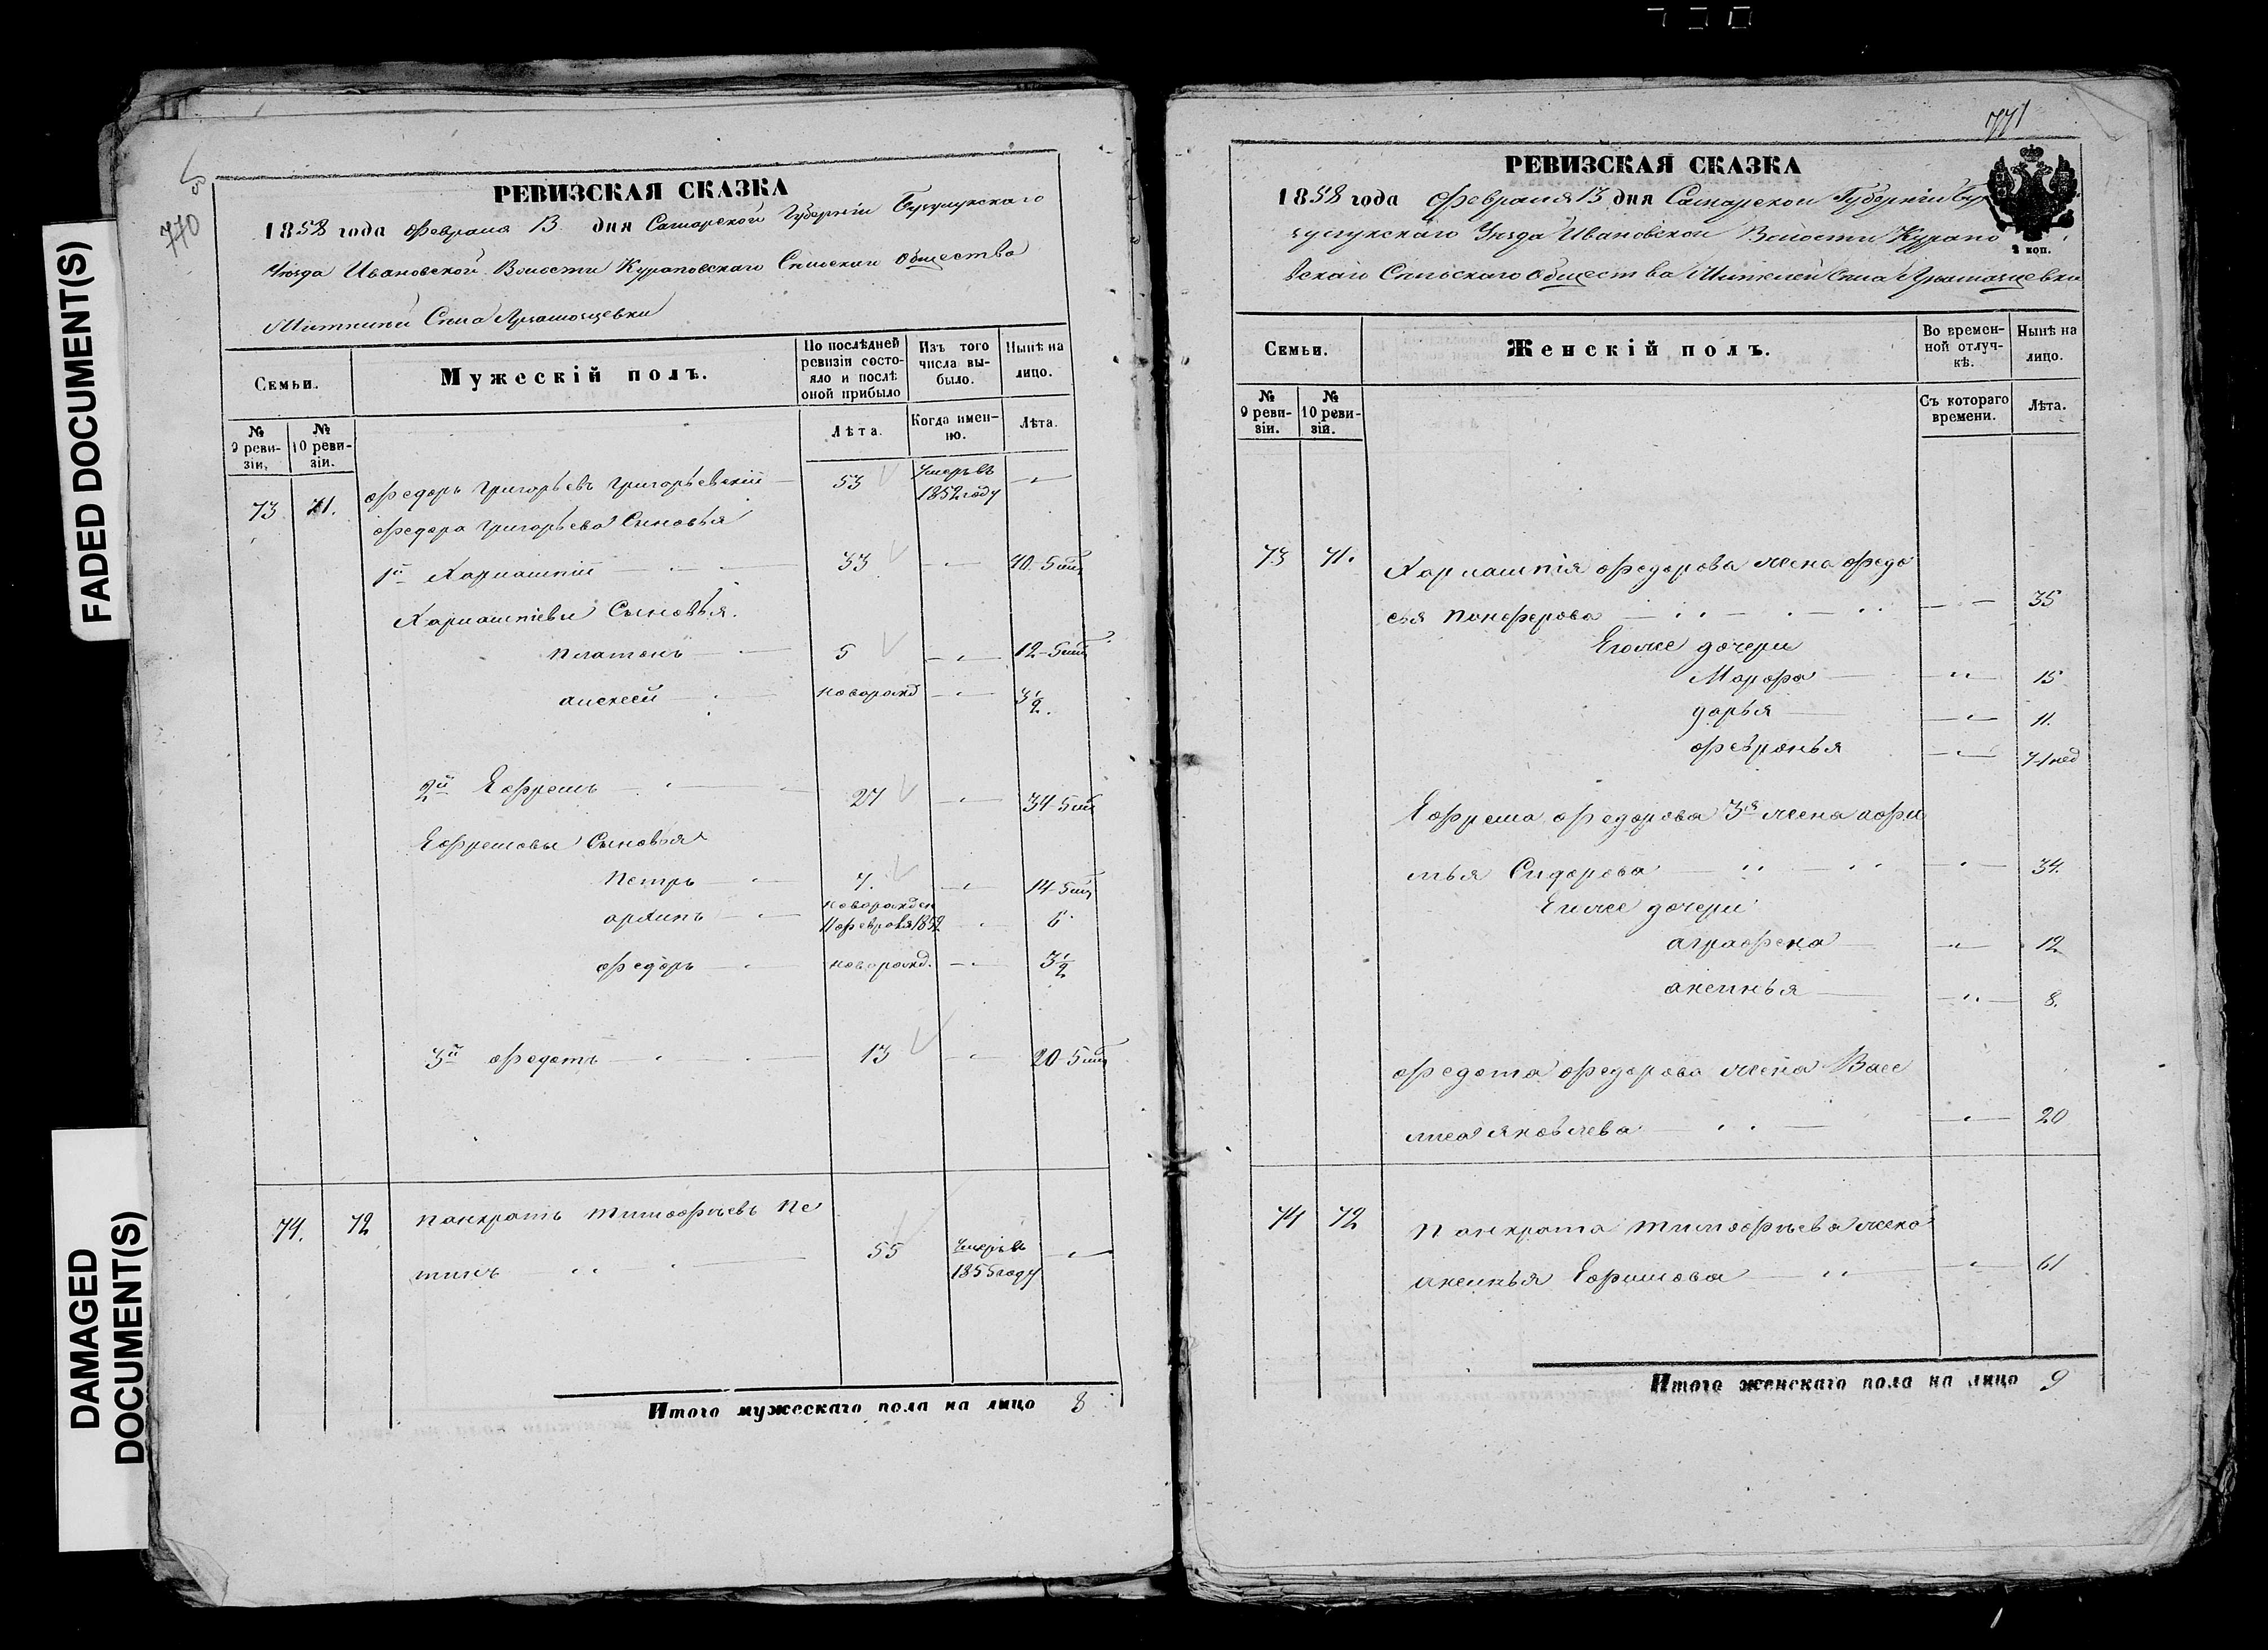 FADED DOCUMENT(S)
DAMAGED
DOCUMENT(S)
770
РЕВИЗСКАЯ СКАЗКА
1858 года февраля 13 дня Самарской Губерніи Бузулукскаго
Уезда Ивановской Волости Сельскаго Общества
Села
Семьи.
Мужескій полъ.
По послѣдней ревизіи состояло и послѣ оной прибыло
Изъ того числа выбыло.
Нынѣ на лицо.
№ 9 ревизіи.
№ 10 ревизіи.
Лѣта.
Когда именно.
Лѣта.
73 71. Федоръ Григорьевъ Григорьевскій 53 умеръ въ 1852 году
Федора Григорьева Сыновья
1й Харлампій 33 40-5
Харлампіевы Сыновья.
Платонъ 5 12-5
Алексей новорожд 3 1/2.
2й Ефремъ 27 34-5
Ефремовы Сыновья
Петръ 7. 14-5
Архипъ новорожден февраля 1852 6
Федоръ новорожд. 3 1/2
3й Федотъ 13 20-5
74. 72 Панкратъ Тимофеевъ Пе
тинъ 55 умеръ въ 1855 году
Итого мужескаго пола на лицо 8
771
РЕВИЗСКАЯ СКАЗКА
1858 года Февраля 13 дня Самарской Губерніи Бу
зулукскаго Уезда Ивановской Волости
Сельскаго Общества Села
2 коп.
Семьи.
Женскій полъ.
Во временной отлучкѣ.
Нынѣ на лицо.
№ 9 ревизіи.
№ 10 ревизіи.
Съ котораго времени.
Лѣта.
73 71. Харлампія Федорова жена Федо
сья 35
Егоже дочери
Марфа 15
Дарья 11.
Февронья 7-1 нед
Ефрема Федорова 3я жена Афи
мья Сидорова 34.
Егоже дочери
Аграфена 12
Аксинья 8.
Федота Федорова жена Васе
лиса Яковлева 20
74 72 Панкрата Тимофеева жена
Аксинья Ефимова 61
Итого женскаго пола на лицо 9